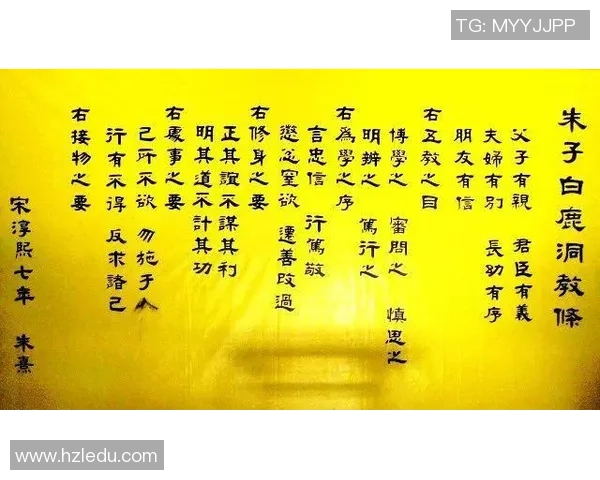 TG: MYYJJPP
朱子白鹿洞教條
父子有親 君臣有義
夫婦有別 長幼有序
朋友有信
右五教之目
博學之 審問之 慎思之
明辨之 篤行之
右為學之序
言忠信 行篤敬
懲忿窒欲 遷善改過
右修身之要
正其誼不謀其利
明其道不計其功
右處事之要
己所不欲 勿施于人
行有不得 反求諸己
右接物之要
宋淳熙七年 朱熹
www.hzledu.com